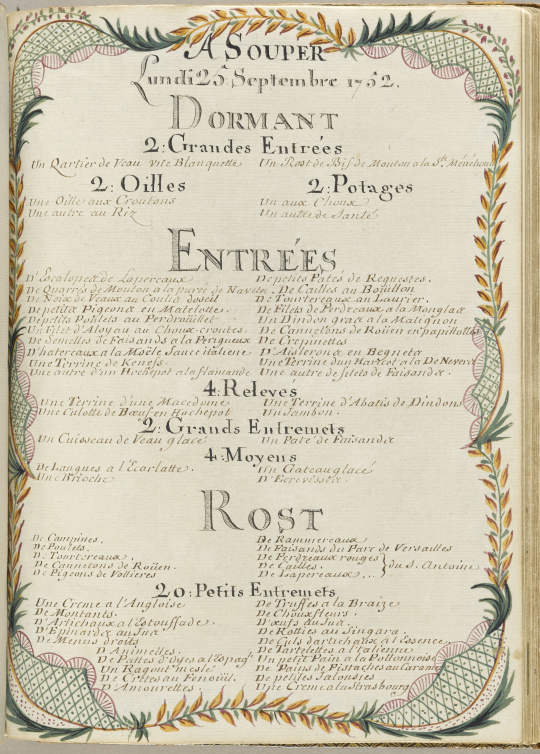 A SOUPER
Lundi 25 Septembre 1752.
DORMANT
2: Grandes Entrées
Un Qartier de Veau vite Blanquette
Un Rost de Bif de Mouton a la Ste. Ménéhoud
2: Oilles
Une Oille aux Croutons
Une autre au Riz
2: Potages
Un aux Choux
Un autre de Santé
ENTRÉES
D'Escalopes de Lapereaux
De Quarrés de Mouton a la purée de Navets
De Noix de Veaux au Coulis doseil
De petits Pigeons en Matelotte.
De petits Poulets au Perdrouillet
Un Filet d'Aloyau au Choux-croutes.
De Semelles de Faisands a la Perigueux
D'hatereaux a la Moële Sauce italiene
Une Terrine de Kenefs
Une autre d'un Hochepot a la flamande
De petits Patés de Requestes.
De Cailles au Boüillon
De Tourtereaux au Laurier.
De Filets de Perdreaux a la Monglas
Un Dindon gras a la Matignon
De Cannetons de Roüen en papillottes
De Crepinettes
D'Aislerons en Begnets
Une Terrine d'un Haricot a la De Nevers
Une autre de filets de Faisands.
4: Releves
Une Terrine d'une Macedoine.
Une Culotte de Bœuf en Hochepot
Une Terrine d'Abatis de Dindons
Un Jambon.
2: Grands Entremets
Un Cuisseau de Veau glacé
Un Paté de Faisands
4: Moyens
De Langues a l'Ecarlatte.
Une Brioche
Un Gateau glacé
D'Ecrevisses.
ROST
De Campines.
De Poulets.
De Tourtereaux.
De Cannetons de Roüen.
De Pigeons de Vollieres
De Rammereaux
De Faisands du Parc de Versailles
De Perdreaux rouges
De Cailles.
De Lapereaux...
du S. Antoine
20: Petits Entremets
Une Creme a l'Angloise
De Montants.
D'Artichaux a l'Estouffade.
D'Epinards au Jus
De Menus droits
D'Animelles.
De Pattes d'Oyes a l'Espagt.
Un Ragout meslé
De Crêtes au Fenoüil.
D'Amourettes.
De Truffes a la Braize
De Chouxfleurs.
D'œufs au Jus.
De Rosties au Singara.
De Culs d'artichaux a l'Essence.
De Tartelettes a l'italienne
Un petit Pain a la Pollonnoise
De Pains de Pistaches au Caramel
De petites Jalousies
Une Creme a la Strasbourg